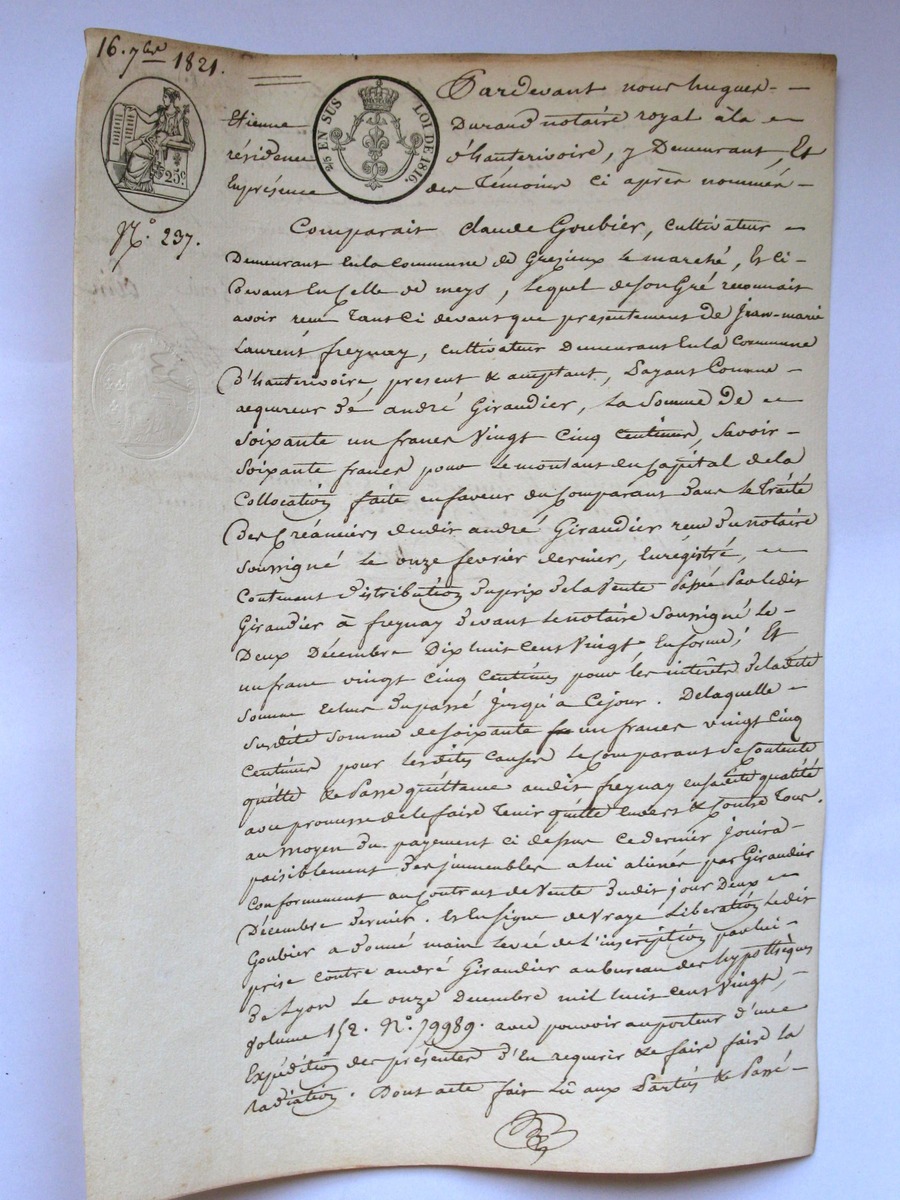 16. 7bre 1821.
25c.
2/5 EN SUS LOI DE 1816.
N.° 237.
Pardevant nous hugues
Etienne Durand notaire royal à la
résidence d'hauterivoire, y Demeurant, Et
En présence des Témoins ci après nommés
Comparait Claude Goubier, cultivateur
Demeurant En la Commune de Grezieux le marché, Et ci
Devant En Celle de meys, lequel de Son Gré reconnait
avoir reçu Tant Ci devant que présentement de Jean-marie
Laurent freynay, cultivateur Demeurant En la Commune
D'hauterivoire, présent & acceptant, Payant Comme
acquereur d'é andré Giraudier, la Somme de
Soixante un francs Vingt Cinq Centimes, Savoir
Soixante francs pour le montant du Capital de la
Collocation faite en faveur du Comparant dans le Traité
Des Créanciers dudit andré Giraudier reçu du notaire
Soussigné le onze fevrier dernier, Enrégistré,
Contenant distribution du prix de la Vente Passée Par ledit
Giraudier à freynay devant le notaire Soussigné le
Deux Décembre Dix huit cent Vingt En forme; Et
un franc vingt cinq Centimes pour les intérêts de ladite
Somme du passé jusqu'à Ce jour. De laquelle
Susdite Somme de Soixante un francs vingt cinq
Centimes pour lesdites Causes le Comparant Se Contente
quitte & Passe quittance audit freynay en sadite qualité
avec promesse de le faire Tenir quitte Envers & Contre Tous.
au moyen du payement ci dessus ce dernier jouira
paisiblement des immeubles a lui alienés par Giraudier
conformément au Contrat de Vente dudit jour Deux
Décembre dernier. Et En Signe de Vraye Libération ledit
Goubier a donné main levée de l'inscription par lui
prise contre andré Giraudier au bureau des hypothèques
de Lyon le onze Decembre mil huit cent Vingt,
Volume 152. N.° 79989. avec pouvoir au porteur d'une
Expédition des présentes d'En requerir & faire faire la
radiation. Dont acte fait Lû aux Parties & Passé